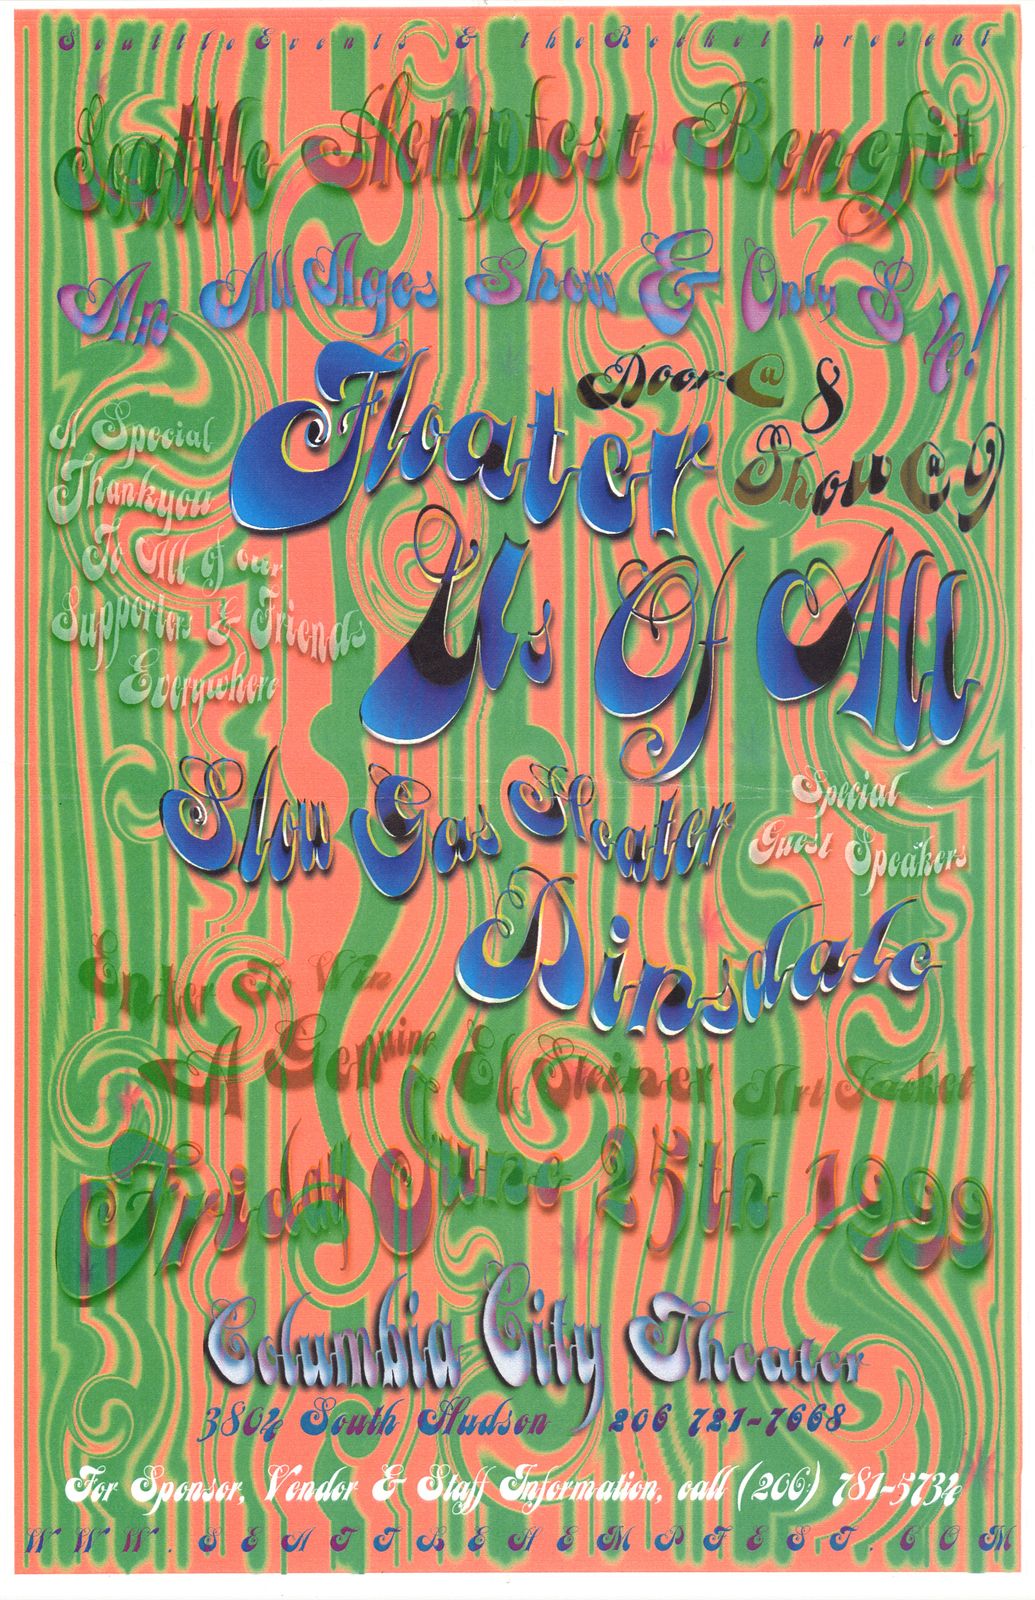 SeattleEvents & theRocket present
Seattle Hempfest Benefit
An All Ages Show & Only $ 4!
Floater
Door @ 8
Show @ 9
A Special
Thankyou
To All of our
Supporters & Friends
Everywhere
Us Of All
Slow Gas Heater
Special
Guest Speakers
Dinsdale
Enter To Win
A Genuine Ef Steiner Art Jacket
Friday June 25th 1999
Columbia City Theater
3804 South Hudson 206 721-7668
For Sponsor, Vendor & Staff Information, call (206) 781-5734
WWW.SEATTLEHEMPFEST.COM